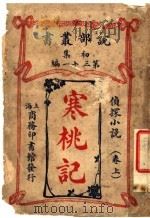 說部叢書
初集
第三十一編
偵探小說
寒桃記
(卷上)
上海
商務印書館發行